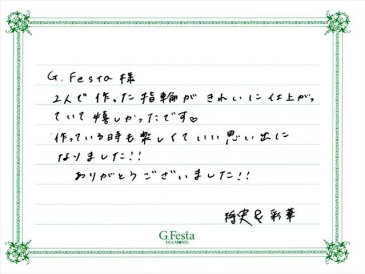 G.Festa 様
2人で作った指輪がきれいに仕上がっ
ていて嬉しかったです♡
作っている時も楽しくていい思い出に
なりました!!
ありがとうございました!!
& 彩華
G.Festa
DIAMOND